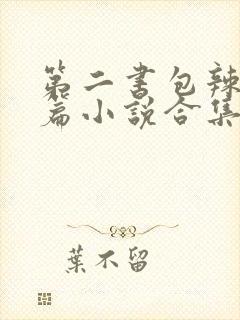 第二书包辣
篇小说合集
葉不留